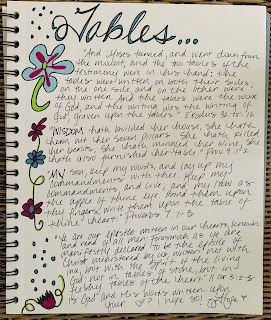 Tables...
"And Moses turned, and went down from
the mount, and the two tables of the
testimony were in his hand; the
tables were written on both their sides;
on the one side and on the other were
they written. And the tables were the work
of God, and the writing was the writing of
God, graven upon the tables." Exodus 32:15-16
"WISDOM hath builded her house, she hath
hewn out her seven pillars: She hath killed
her beasts; she hath mingled her wine; she
hath also furnished her table." Prov. 9:1-2
"MY son, keep my words, and lay up my
commandments with thee. Keep my
commandments, and live; and my law as
the apple of thine eye. Bind them upon
thy fingers, write them upon the table of
thine heart." Proverbs 7:1-3
"Ye are our epistle written in our hearts, known
and read of all men: Forasmuch as ye are
manifestly declared to be the epistle of
Christ ministered by us, written not with
ink, but with the Spirit of the living
God; not in tables of stone, but in
fleshy tables of the heart." 3:2-3
Is God and His Words written upon
your ♡? I hope so!